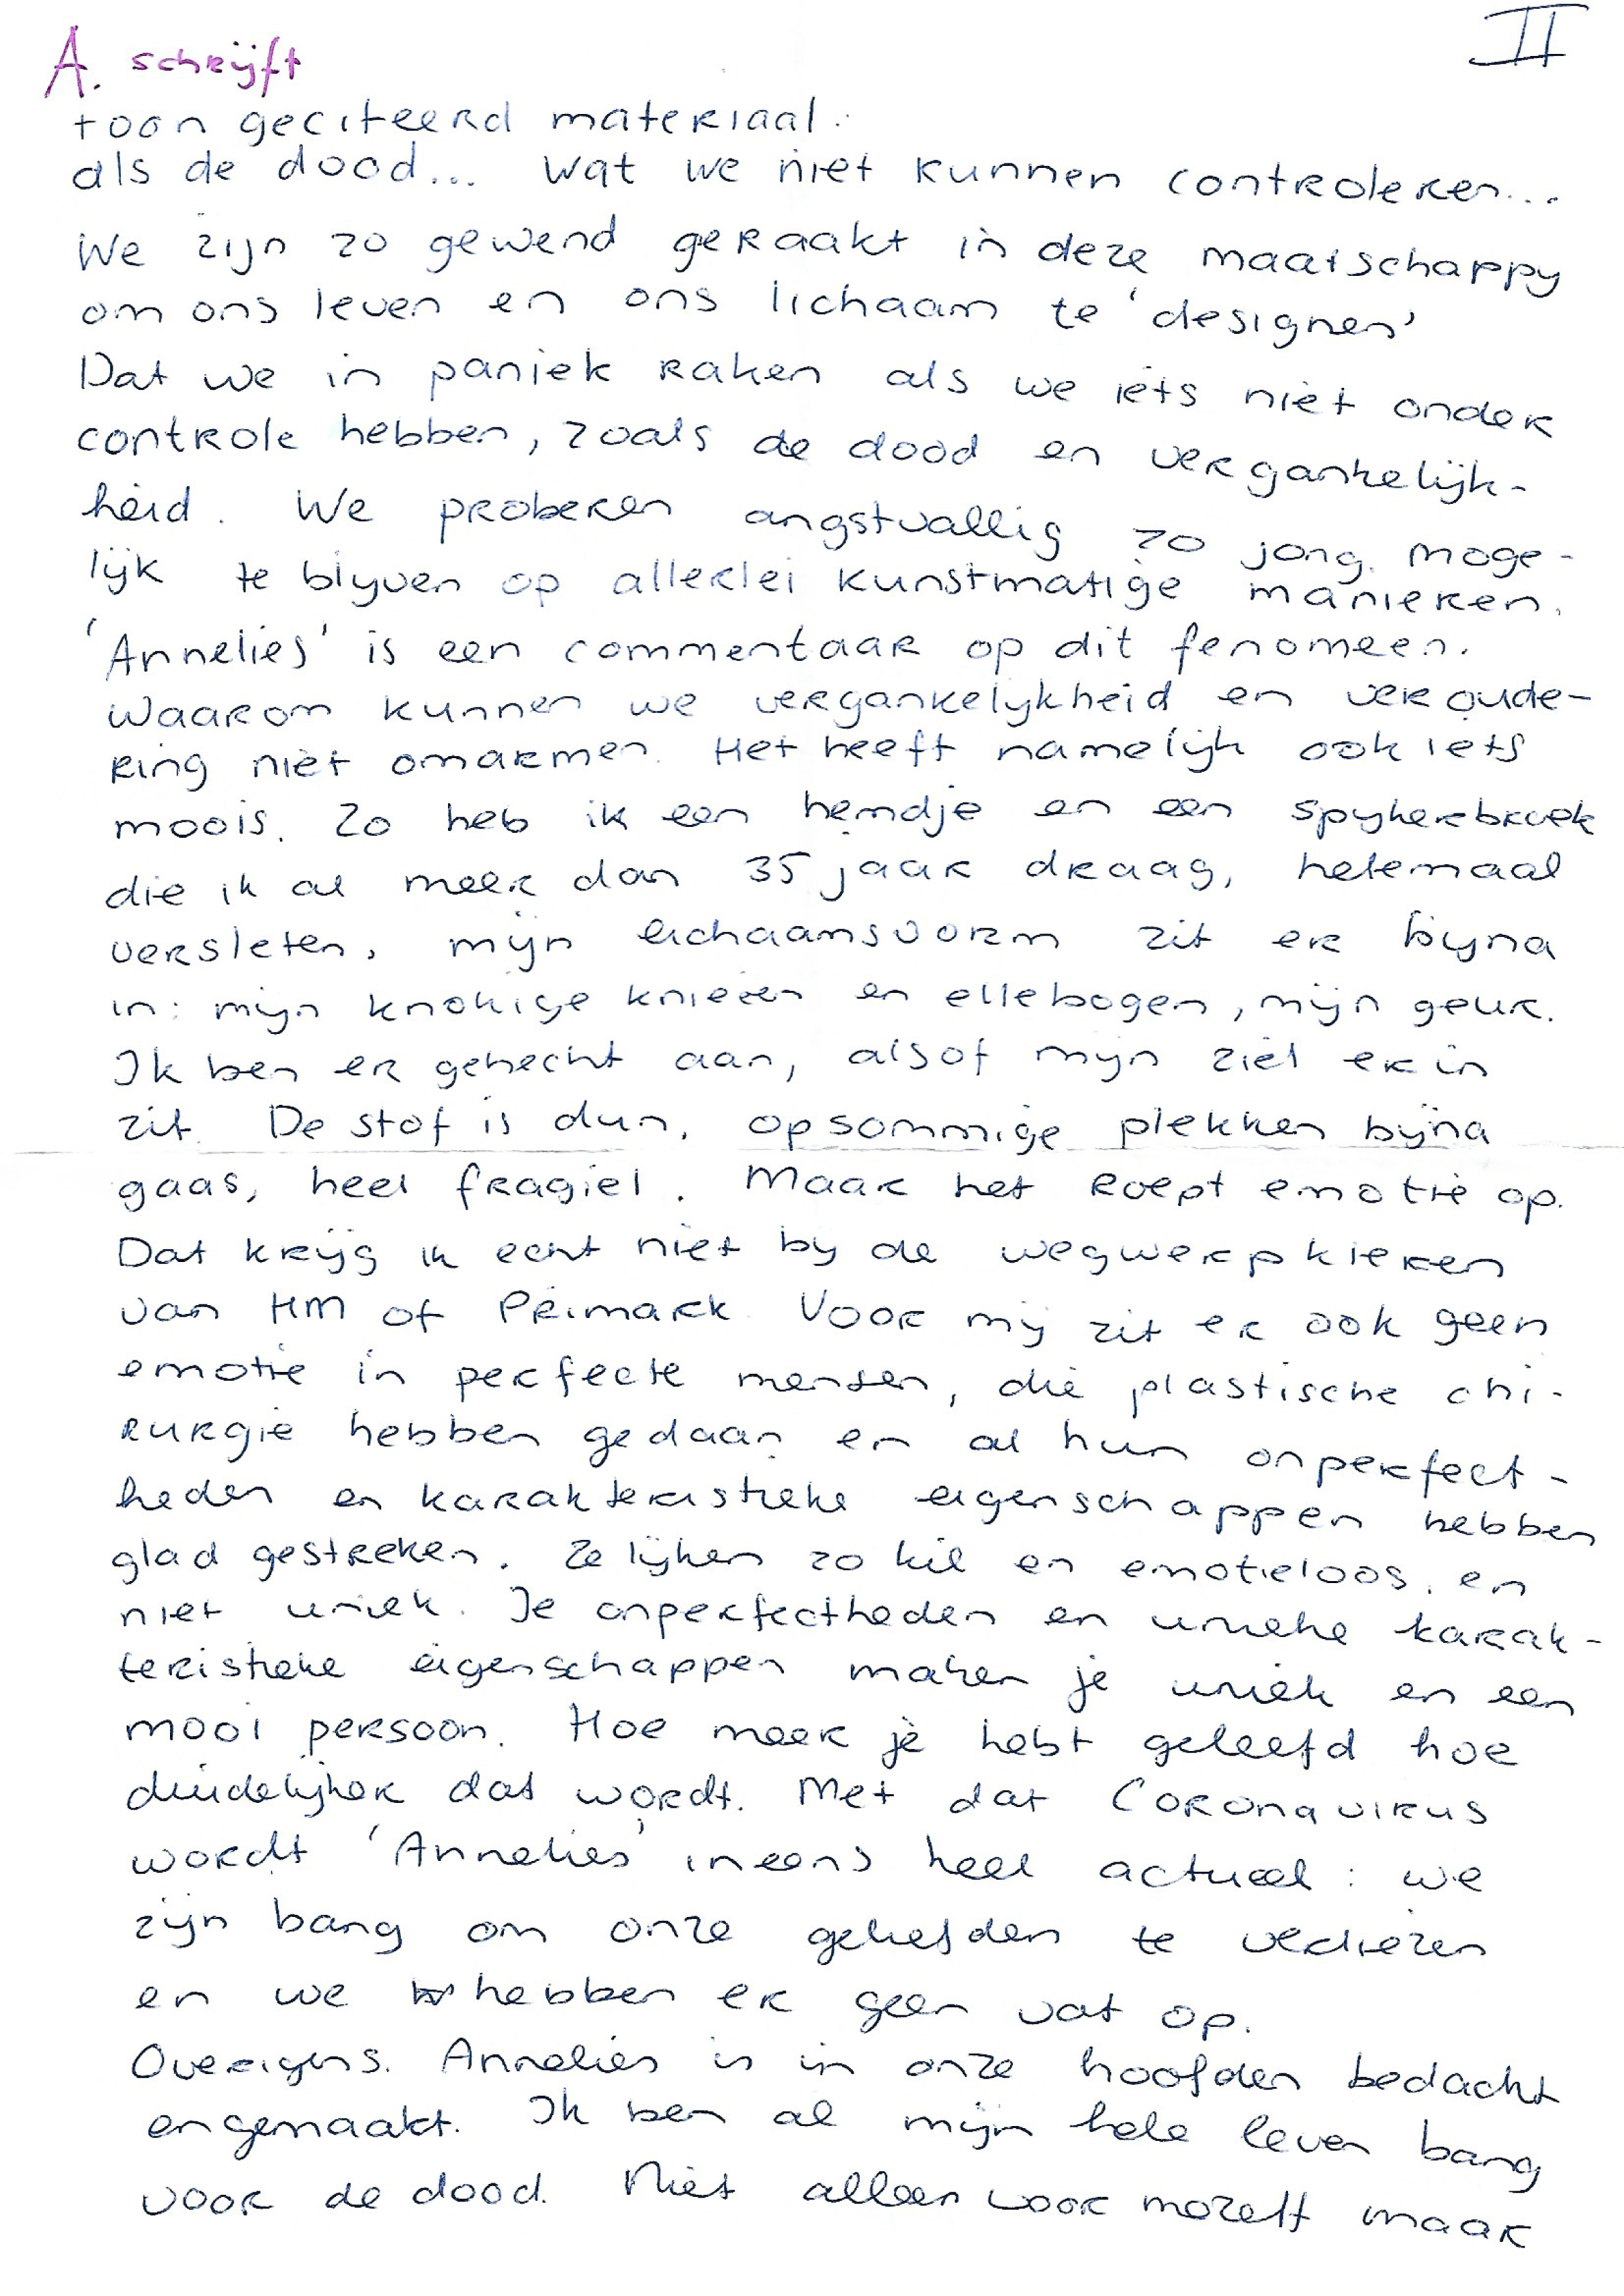 II
A. schrijft
toon geciteerd materiaal.
als de dood... wat we niet kunnen controleren...
We zijn zo gewend geraakt in deze maatschappy
om ons leven en ons lichaam te 'designen'
Dat we in paniek raken als we iets niet onder
controle hebben, zoals de dood en vergankelijk-
heid. We proberen angstvallig zo jong moge-
lijk te blyven op allerlei kunstmatige manieren.
'Annelies' is een commentaar op dit fenomeen.
Waarom kunnen we vergankelykheid en veroude-
ring niet omarmen. Het heeft namelijk ook iets
moois. Zo heb ik een hemdje en een spykerbroek
die ik al meer dan 35 jaar draag, helemaal
versleten, mijn lichaamsvorm zit er byna
in: mijn knokige knieëen en ellebogen, mijn geur.
Ik ben er gehecht aan, alsof myn ziel er in
zit. De stof is dun, op sommige plekken bijna
gaas, heel fragiel. Maar het roept emotie op.
Dat krijg ik echt niet by de wegwerpkleren
van HM of Primark. Voor mij zit er ook geen
emotie in perfecte mensen, die plastische chi-
rurgie hebben gedaan en al hun onperfect-
heden en karakteristieke eigenschappen hebben
glad gestreken. Ze lijken zo kil en emotieloos. en
niet uniek. Je onperfectheden en unieke karak-
teristieke eigenschappen maken je uniek en een
mooi persoon. Hoe meer je hebt geleefd hoe
duidelijker dat wordt. Met dat Coronavirus
wordt 'Annelies' ineens heel actueel: we
zijn bang om onze geliefden te verliezen
en we hebben er geen vat op.
Overigens. Annelies is in onze hoofden bedacht
en gemaakt. Ik ben al mijn hele leven bang
voor de dood. Niet alleen voor mezelf maar